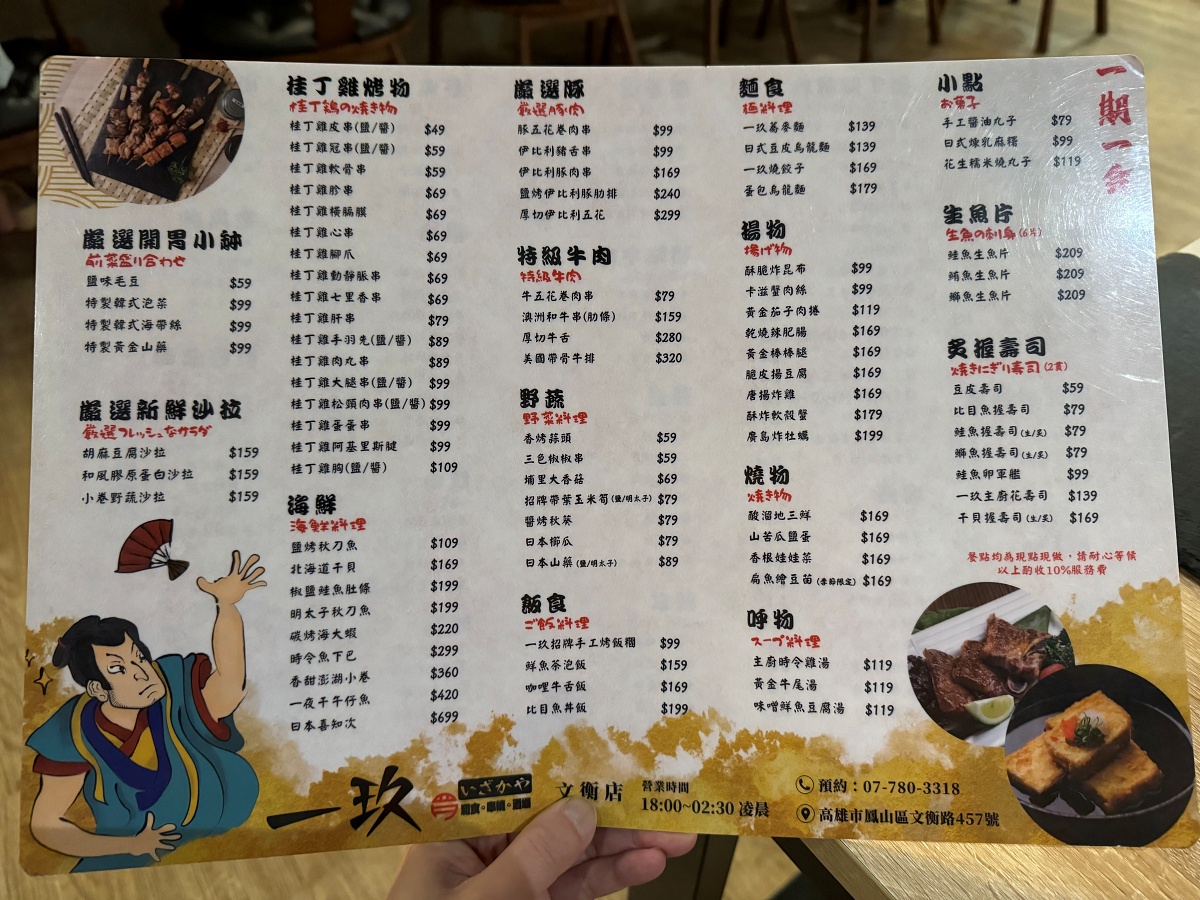 厳選開胃小缽
前菜盛り合わせ
鹽味毛豆 $59
特製韓式泡菜 $99
特製韓式海帶絲 $99
特製黃金山藥 $99
厳選新鮮沙拉
厳選フレッシュなサラダ
胡麻豆腐沙拉 $159
和風膠原蛋白沙拉 $159
小卷野蔬沙拉 $159
桂丁雞烤物
桂丁鶏の焼き物
桂丁雞皮串(鹽/醬) $49
桂丁雞冠串(鹽/醬) $59
桂丁雞軟骨串 $59
桂丁雞胗串 $69
桂丁雞橫膈膜 $69
桂丁雞心串 $69
桂丁雞腳爪 $69
桂丁雞動靜脈串 $69
桂丁雞七里香串 $69
桂丁雞肝串 $79
桂丁雞手羽先(鹽/醬) $89
桂丁雞肉丸串 $89
桂丁雞大腿串(鹽/醬) $99
桂丁雞松頸肉串(鹽/醬) $99
桂丁雞蛋蛋串 $99
桂丁雞阿基里斯腱 $99
桂丁雞胸(鹽/醬) $109
海鮮
海鮮料理
鹽烤秋刀魚 $109
北海道干貝 $169
椒鹽鮭魚肚條 $199
明太子秋刀魚 $199
碳烤海大蝦 $220
時令魚下巴 $299
香甜澎湖小卷 $360
一夜干午仔魚 $420
日本喜知次 $699
厳選豚
厳選豚肉
豚五花卷肉串 $99
伊比利豬舌串 $99
伊比利豚肉串 $169
鹽烤伊比利豚肋排 $240
厚切伊比利五花 $299
特級牛肉
特級牛肉
牛五花卷肉串 $79
澳洲和牛串(肋條) $159
厚切牛舌 $280
美國帶骨牛排 $320
野蔬
野菜料理
香烤蒜頭 $59
三色椒椒串 $59
埔里大香菇 $69
招牌帶葉玉米筍(鹽/明太子) $79
醬烤秋葵 $79
日本櫛瓜 $79
日本山藥(鹽/明太子) $89
飯食
ご飯料理
一玖招牌手工烤飯糰 $99
鮮魚茶泡飯 $159
咖哩牛舌飯 $169
比目魚丼飯 $199
麵食
麺料理
一玖蕎麥麵 $139
日式豆皮烏龍麵 $139
一玖燒餃子 $169
蛋包烏龍麵 $179
揚物
揚げ物
酥脆炸昆布 $99
卡滋蟹肉絲 $99
黃金茄子肉捲 $119
乾燒辣肥腸 $169
黃金棒棒腿 $169
脆皮揚豆腐 $169
唐揚炸雞 $169
酥炸軟殼蟹 $179
廣島炸牡蠣 $199
燒物
焼き物
酸溜地三鮮 $169
山苦瓜鹽蛋 $169
香根娃娃菜 $169
扁魚繪豆苗(季節限定) $169
呼物
スープ料理
主廚時令雞湯 $119
黃金牛尾湯 $119
味噌鮮魚豆腐湯 $119
小點
お菓子
手工醬油丸子 $79
日式煉乳麻糬 $99
花生糯米燒丸子 $119
一期一会
生魚片
生魚の刺身(6片)
鮭魚生魚片 $209
鮪魚生魚片 $209
鰤魚生魚片 $209
炙握壽司
焼きにぎり寿司(2貫)
豆皮壽司 $59
比目魚握壽司 $79
鮭魚握壽司(生/炙) $79
鰤魚握壽司(生/炙) $79
鮭魚卵軍艦 $99
一玖主廚花壽司 $139
干貝握壽司(生/炙) $169
餐點均為現點現做・請耐心等候
以上酌收10%服務費
一玖
いざかや
文衡店
營業時間
18:00~02:30 凌晨
預約：07-780-3318
高雄市鳳山區文衡路457號